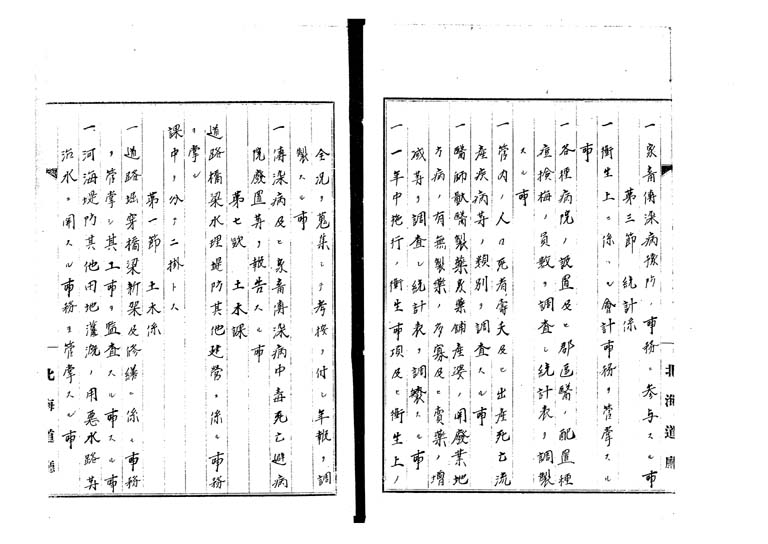 一家畜傳染病豫防ノ事務ニ參与スル事
第三節 統計係
一衛生上ニ係ル會計事務ヲ管掌スル
事
一各種病院ノ設置及ヒ郡區醫ノ配置種
痘檢梅ノ員数ヲ調査シ統計表ヲ調製
スル事
一管内ノ人口死者壽夭及ヒ出産死亡流
産疾病等ノ類別ヲ調査スル事
一醫師獸醫製藥家藥舗産婆ノ開廢業地
方病ノ有無製藥ノ多寡及ヒ賣藥ノ增
减等ヲ調査シ統計表ヲ調製スル事
一一年中施行ノ衛生事項及ヒ衛生上ノ
北海道廳
全況ヲ蒐集シテ考按ヲ付シ年報ヲ調
製スル事
一傳染病及ヒ家畜傳染病中毒死亡避病
院廢置等ヲ報告スル事
第七欵 土木課
道路橋梁水理堤防其他建営ニ係ル事務
ヲ掌ル
課中ヲ分テ二掛トス
第一節 土木係
一道路堀穿橋梁新架及修繕ニ係ル事務
ヲ管掌シ其工事ヲ監査スル事
一河海堤防其他田地灌漑ノ用惡水路等
治水ニ関スル事務ヲ管掌スル事
北海道廳